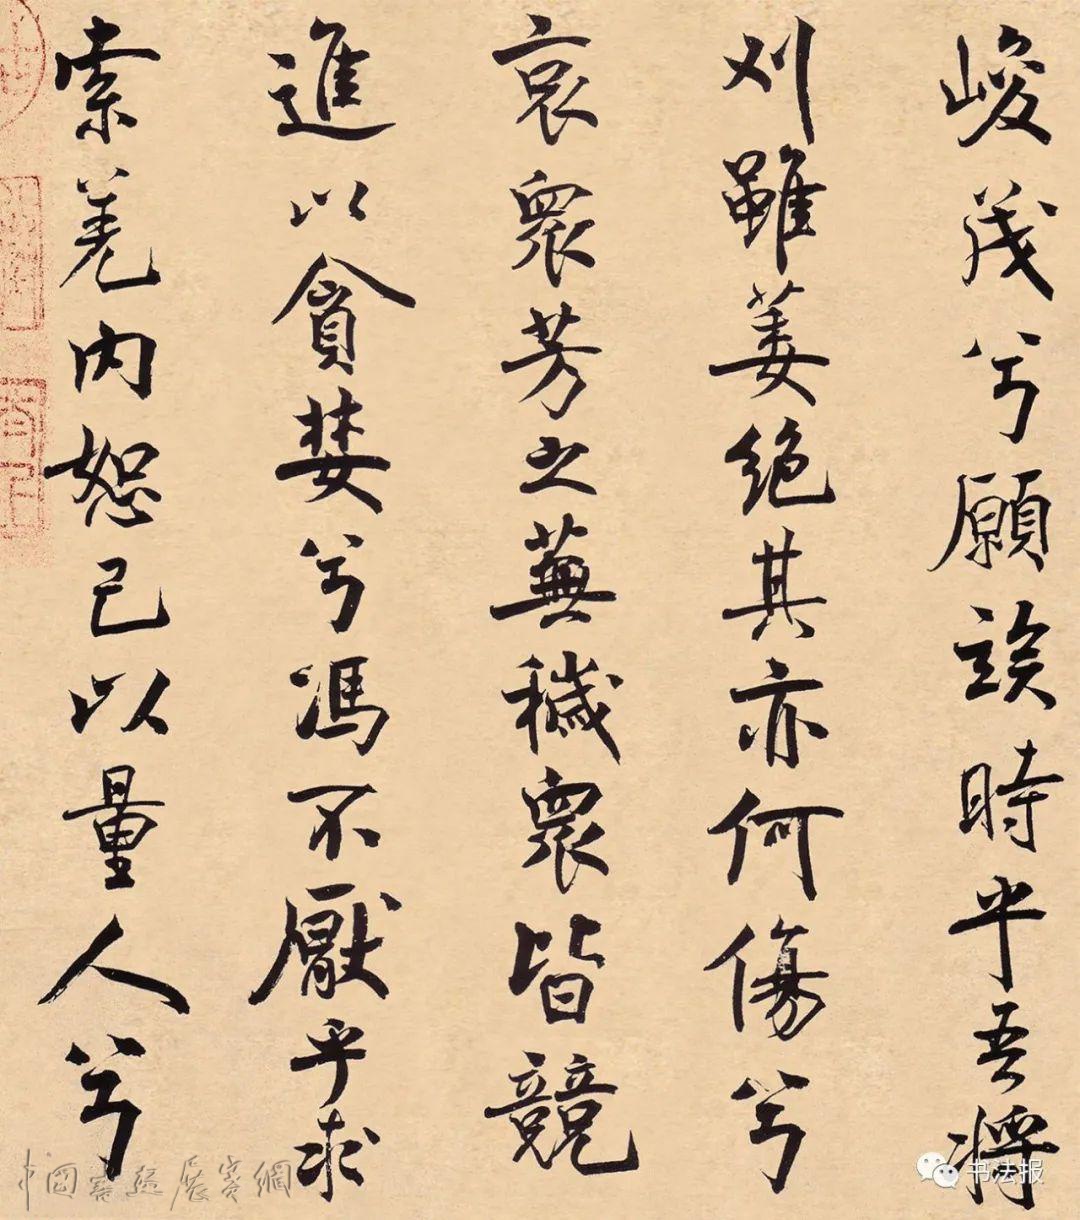 峻茂兮願竢時乎吾將
刈雖萎絶其亦何傷兮
哀衆芳之蕪穢衆皆競
進以貪婪兮馮不厭乎求
索羌内恕己以量人兮
中國書法展賽網
书法报